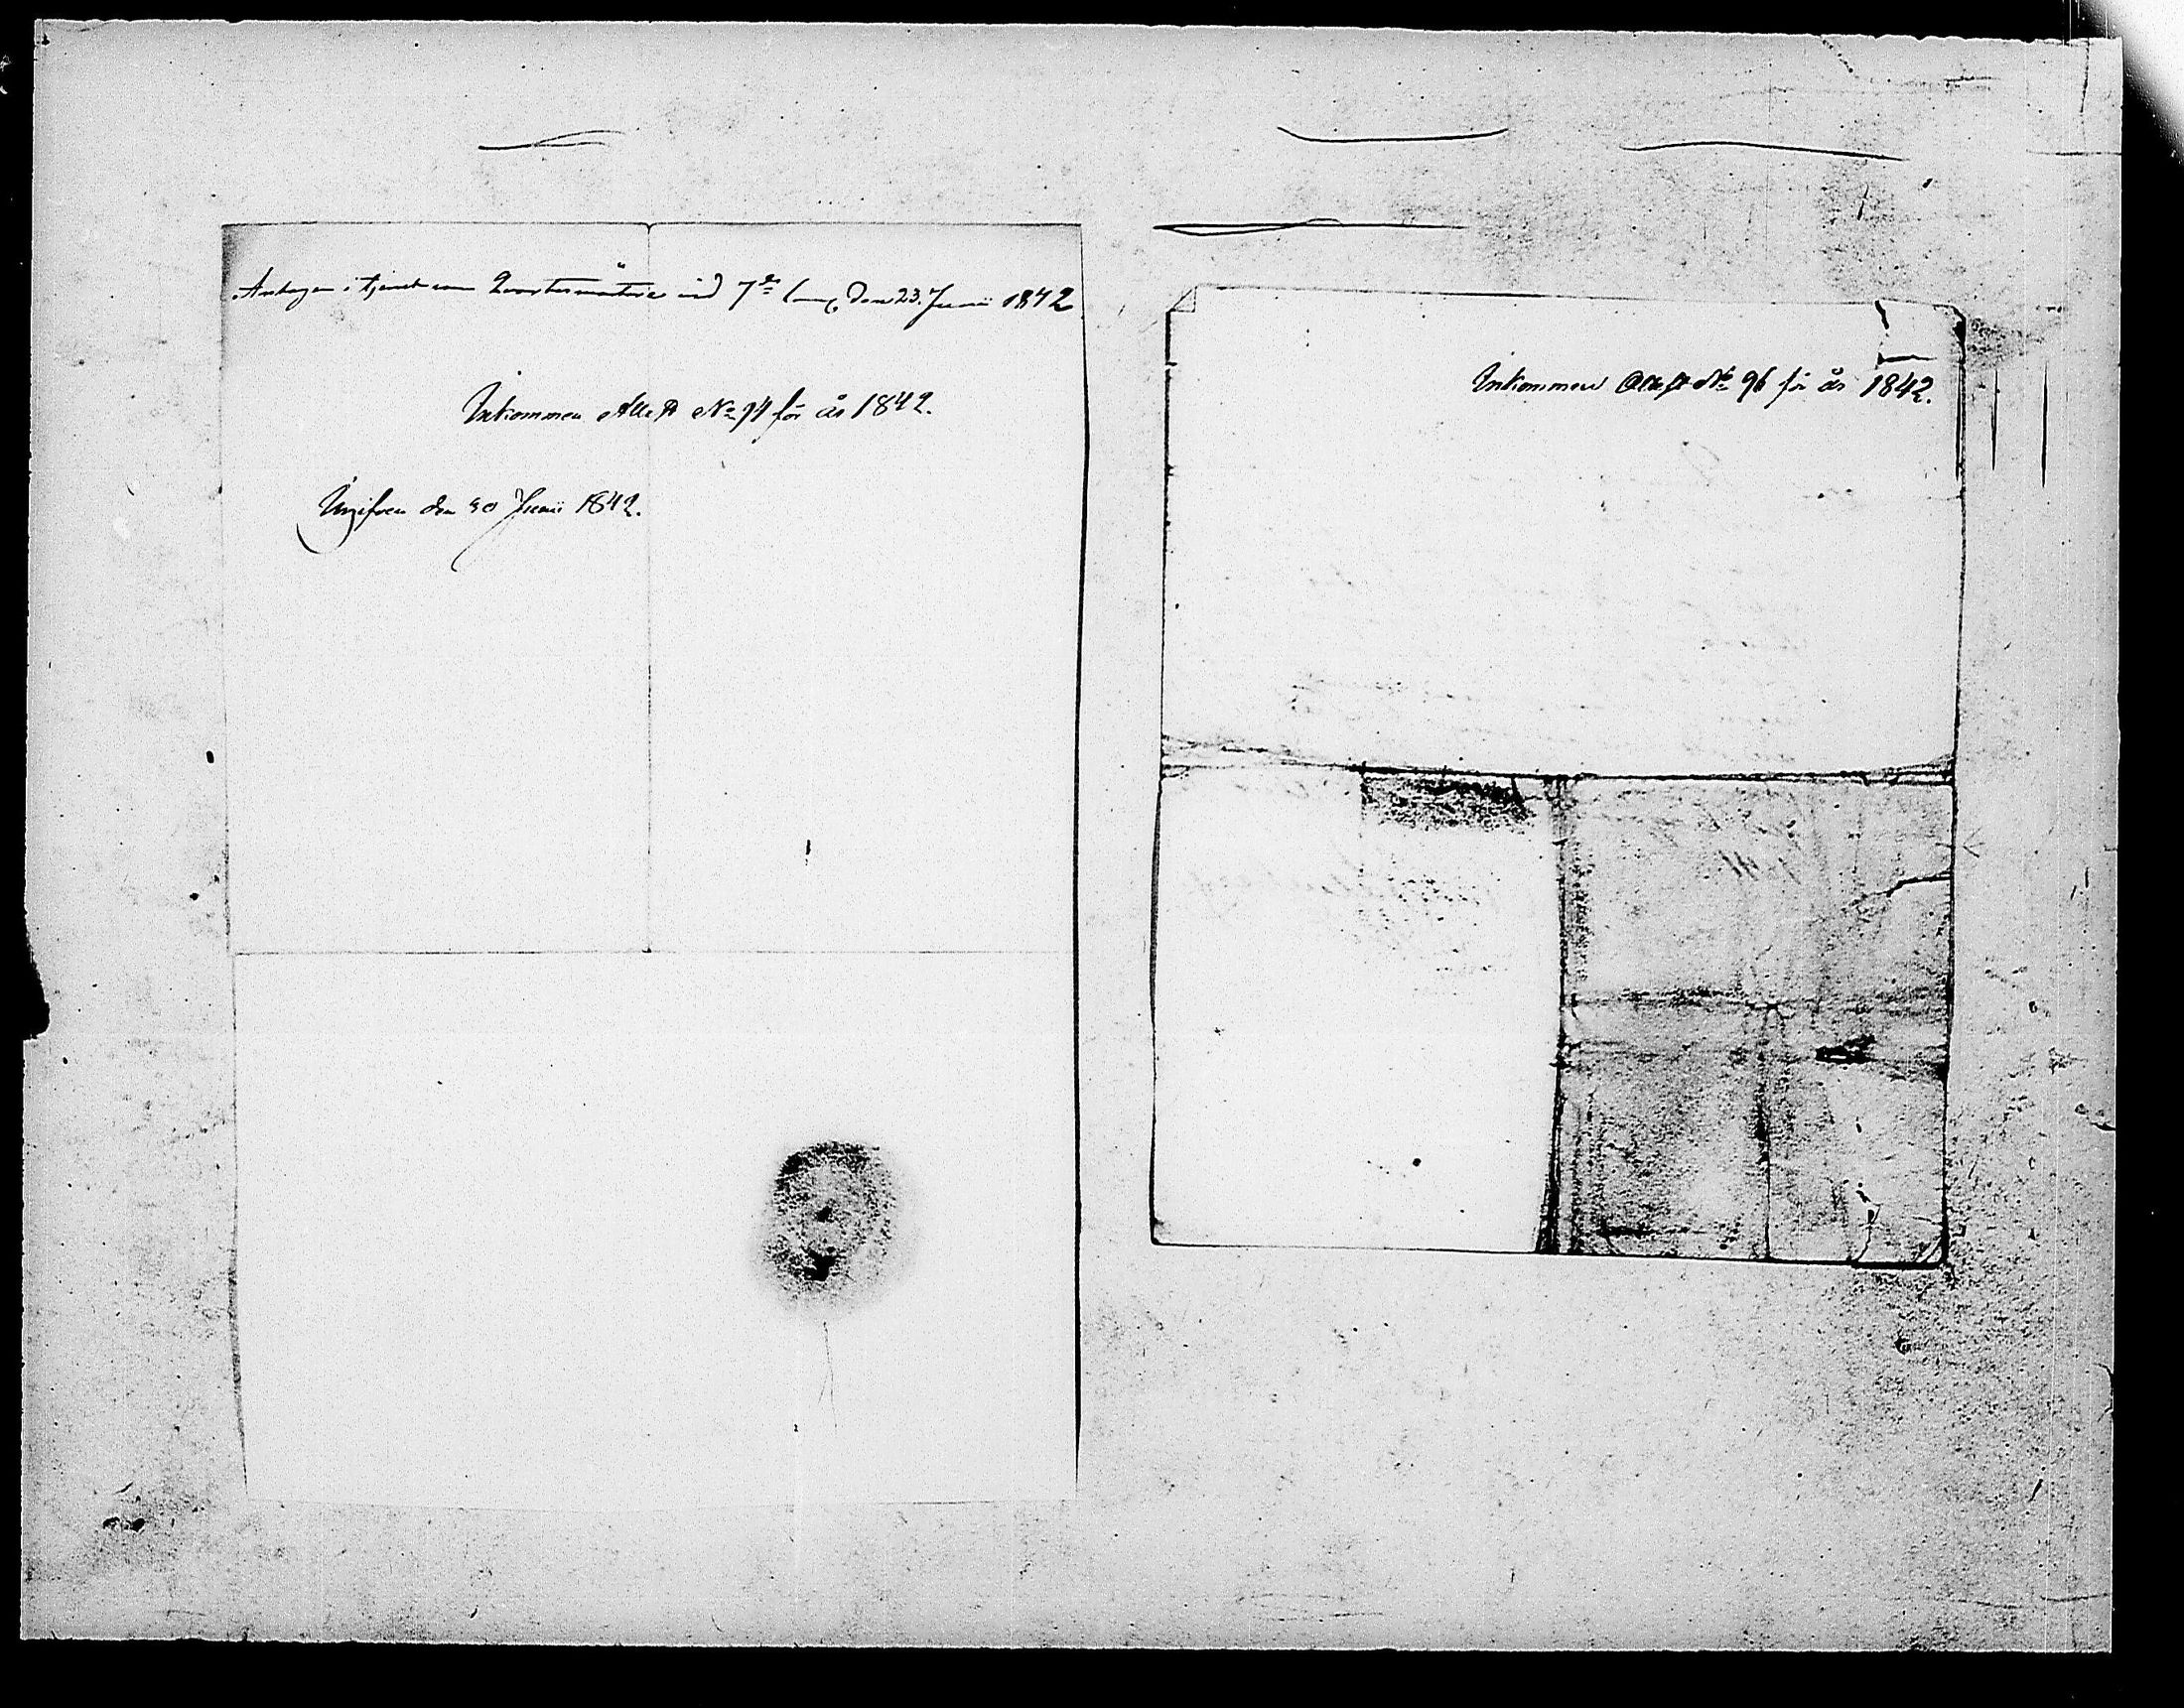 Antagen i tjenst som Quartermästare vid 7de Comp. den 23. Junii 1842
Inkommen Att. N:o 94 för år 1842.
Uzifven den 30 Junii 1842.
Inkommen Attest N:o 96 för år 1842.